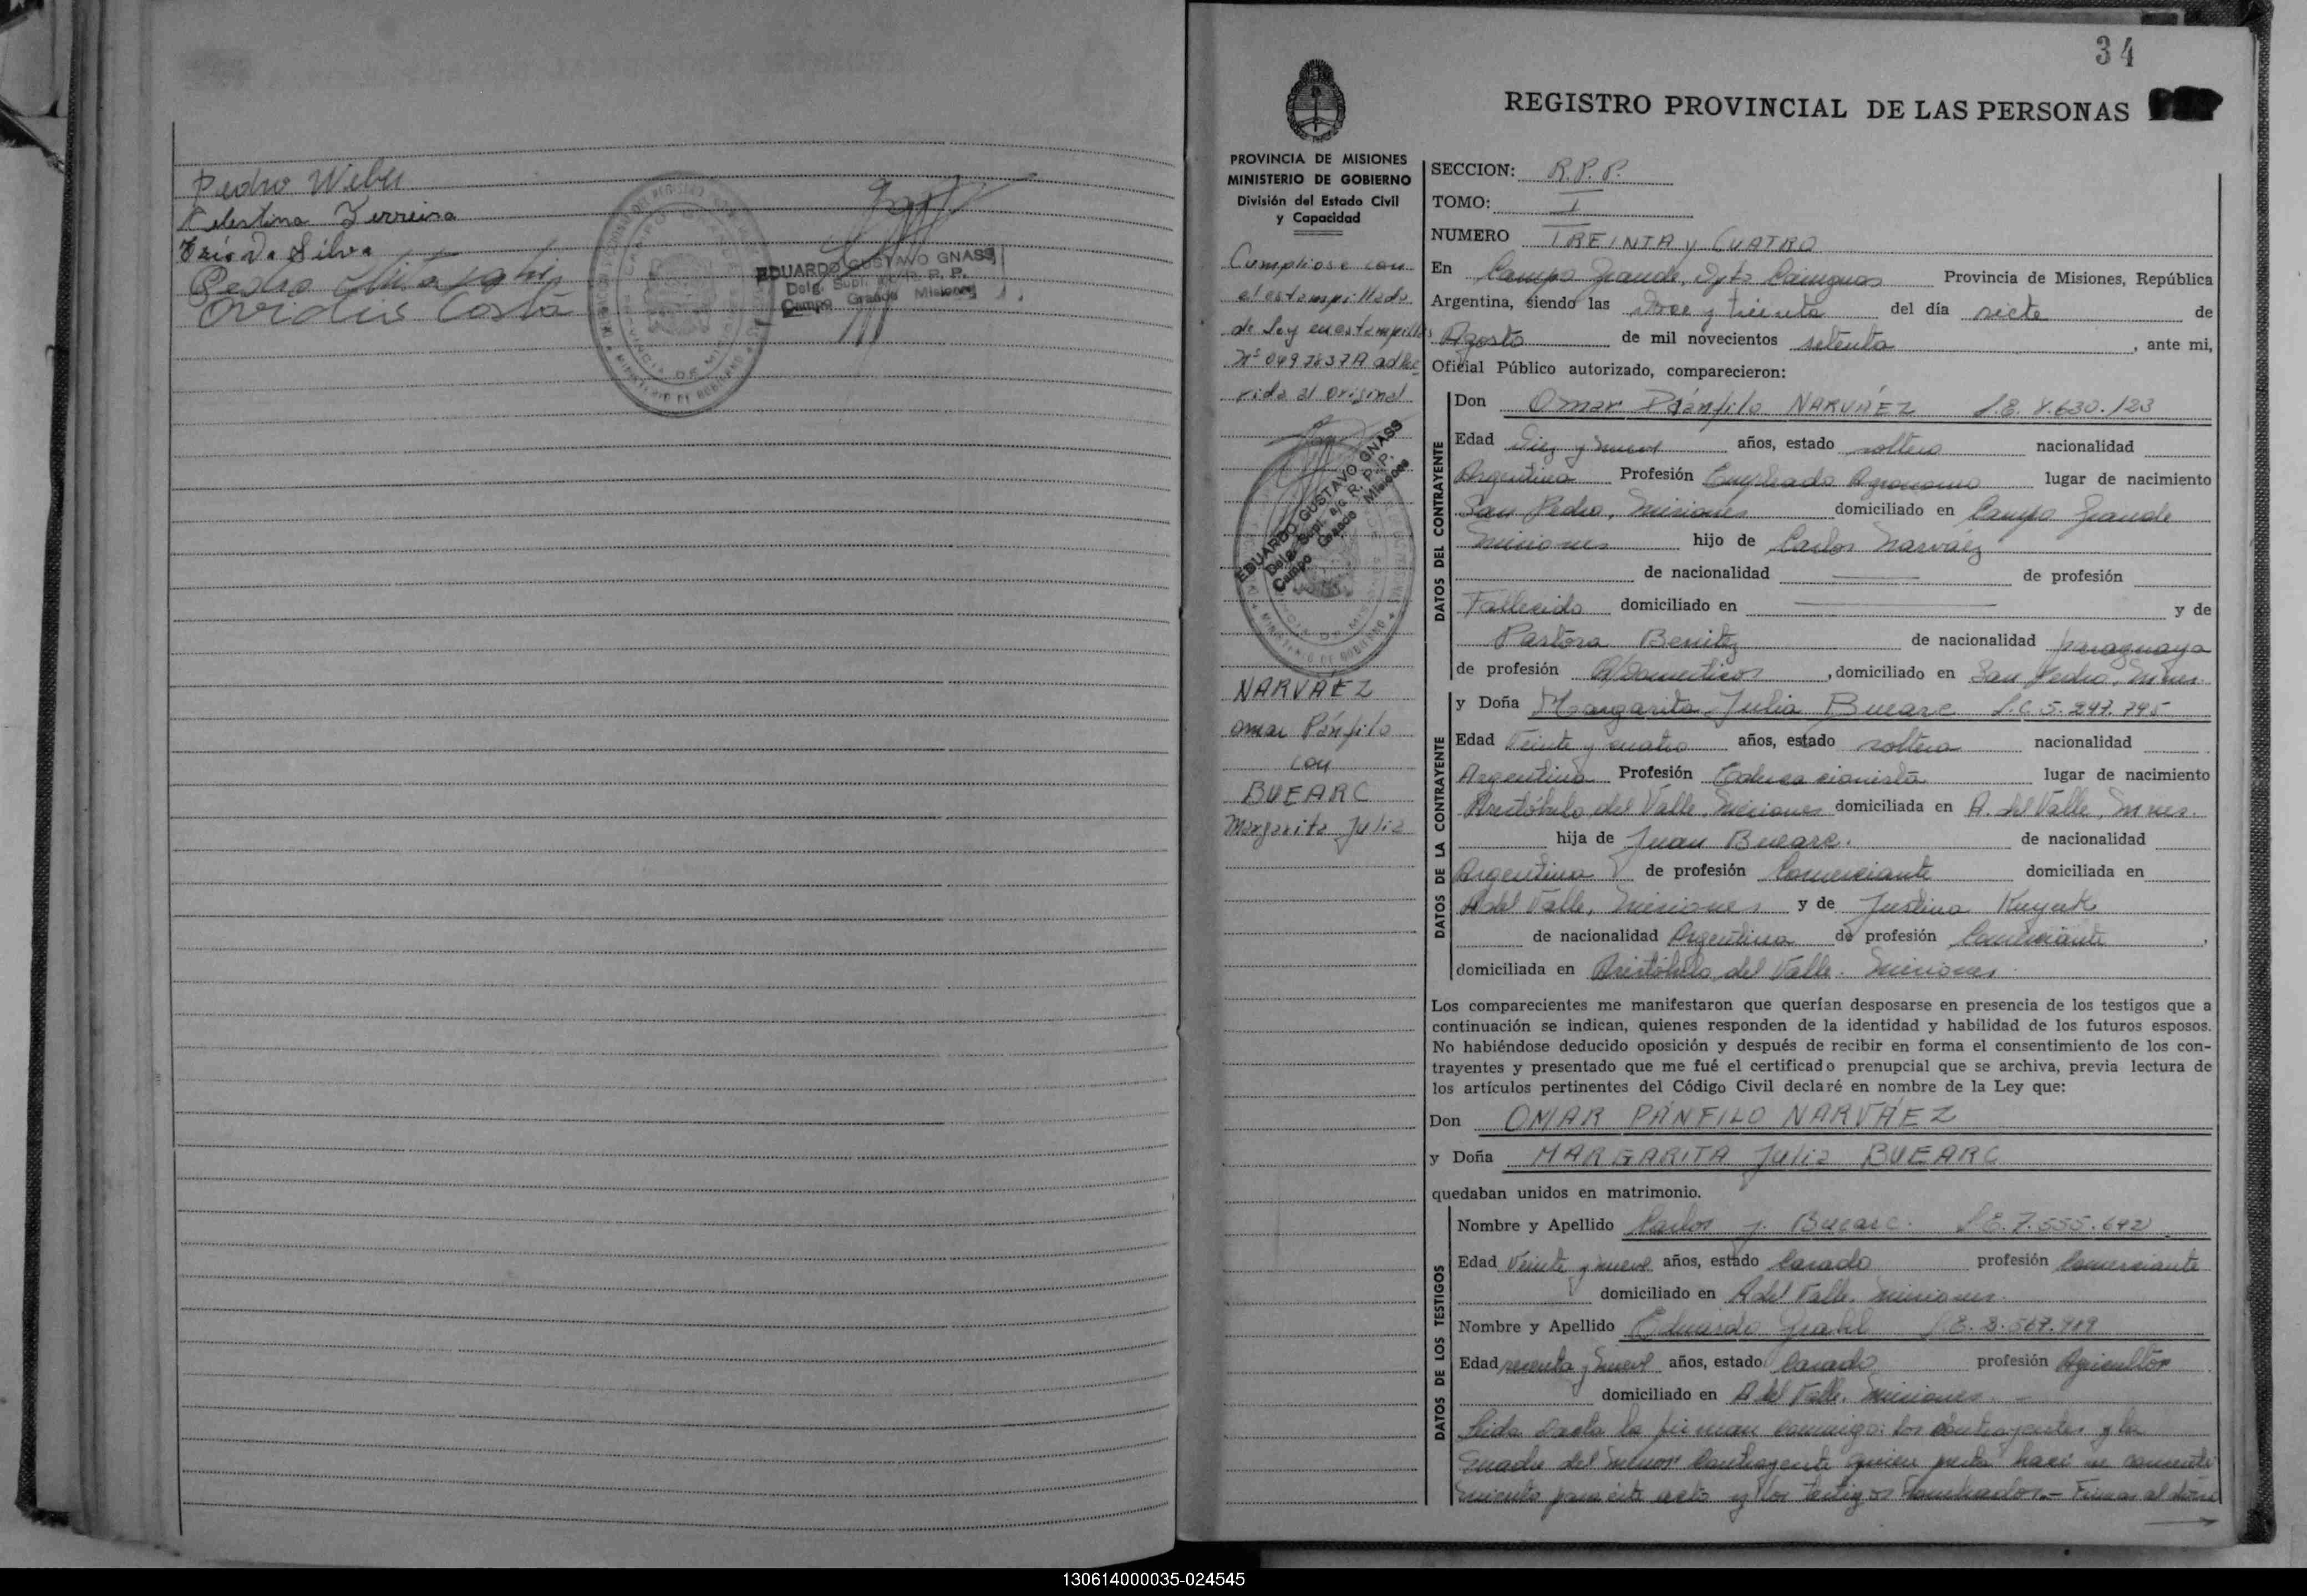 Pedro Weber
Celestina Ferreira
Da Silva
Pedro
Ovidius Costa
EDUARDO GUSTAVO GNASS
Delg. Supl. a/c R. P. P.
Campo Grande Misiones
34
REGISTRO PROVINCIAL DE LAS PERSONAS
PROVINCIA DE MISIONES
MINISTERIO DE GOBIERNO
División del Estado Civil
y Capacidad
Cumpliose con
el estampillado
de ley en estampillas
Nº 0497837A adhe
rida al original
EDUARDO GUSTAVO GNASS
Delg. Supl. a/c R. P. P.
Campo Grande Misiones
NARVAEZ
Omar Pánfilo
con
BUEARC
Margarita Julia
SECCION: R.P.P.
TOMO: I
NUMERO TREINTA y CUATRO
En Campo Grande, Dpto Cainguas Provincia de Misiones, República
Argentina, siendo las doce y treinta del día siete de
Agosto de mil novecientos setenta, ante mi,
Oficial Público autorizado, comparecieron:
DATOS DEL CONTRAYENTE
Don Omar Pánfilo NARVAEZ L.E. 8.630.123
Edad Diez y nueve años, estado soltero nacionalidad
Argentina Profesión Empleado Agronomo lugar de nacimiento
San Pedro, Misiones domiciliado en Campo Grande
Misiones hijo de Carlos Narvaez
de nacionalidad de profesión
Fallecido domiciliado en y de
Pastora Benitez de nacionalidad paraguaya
de profesión Q/Domesticos, domiciliado en San Pedro, Mnes.
DATOS DE LA CONTRAYENTE
y Doña Margarita Julia Buearc L.C. 5.247.745
Edad Veinte y cuatro años, estado soltera nacionalidad
Argentina Profesión Educacionista lugar de nacimiento
Aristóbulo del Valle, Misiones domiciliada en A. del Valle, Mnes.
hija de Juan Buearc. de nacionalidad
Argentina de profesión Comerciante domiciliada en
A del Valle, Misiones y de Justina
de nacionalidad Argentina de profesión Comerciante,
domiciliada en Aristóbulo del Valle. Misiones.
Los comparecientes me manifestaron que querían desposarse en presencia de los testigos que a
continuación se indican, quienes responden de la identidad y habilidad de los futuros esposos.
No habiéndose deducido oposición y después de recibir en forma el consentimiento de los con-
trayentes y presentado que me fué el certificado prenupcial que se archiva, previa lectura de
los artículos pertinentes del Código Civil declaré en nombre de la Ley que:
Don OMAR PÁNFILO NARVÁEZ
y Doña MARGARITA Julia BUEARC
quedaban unidos en matrimonio.
DATOS DE LOS TESTIGOS
Nombre y Apellido Carlos J. Buearc. L.E. 7.555.642
Edad Veinte y nueve años, estado Casado profesión Comerciante
domiciliado en A del Valle, Misiones.
Nombre y Apellido Eduardo L.E. 8.567.989
Edad y nueve años, estado Casado profesión Agricultor
domiciliado en A del Valle. Misiones.
Leida acta la firman conmigo: los contrayentes y la
madre del menor Contrayente quien presta su consenti
miento para éste acto y los testigos nombrados.- Firmas al dorso
130614000035-024545